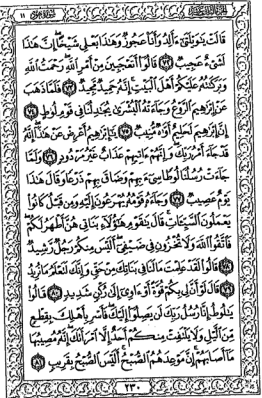 قَالَتْ يَٰوَيْلَتَىٰٓ ءَأَلِدُ وَأَنَا۠ عَجُوزٌ وَهَٰذَا بَعْلِى شَيْخًا إِنَّ هَٰذَا
لَشَىْءٌ عَجِيبٌ ٧٢ قَالُوٓا۟ أَتَعْجَبِينَ مِنْ أَمْرِ ٱللَّهِ رَحْمَتُ ٱللَّهِ
وَبَرَكَٰتُهُۥ عَلَيْكُمْ أَهْلَ ٱلْبَيْتِ إِنَّهُۥ حَمِيدٌ مَّجِيدٌ ٧٣ فَلَمَّا ذَهَبَ
عَنْ إِبْرَٰهِيمَ ٱلرَّوْعُ وَجَآءَتْهُ ٱلْبُشْرَىٰ يُجَٰدِلُنَا فِى قَوْمِ لُوطٍ ٧٤
إِنَّ إِبْرَٰهِيمَ لَحَلِيمٌ أَوَّٰهٌ مُّنِيبٌ ٧٥ يَٰٓإِبْرَٰهِيمُ أَعْرِضْ عَنْ هَٰذَآ إِنَّهُۥ
قَدْ جَآءَ أَمْرُ رَبِّكَ وَإِنَّهُمْ ءَاتِيهِمْ عَذَابٌ غَيْرُ مَرْدُودٍ ٧٦ وَلَمَّا
جَآءَتْ رُسُلُنَا لُوطًا سِىٓءَ بِهِمْ وَضَاقَ بِهِمْ ذَرْعًا وَقَالَ هَٰذَا
يَوْمٌ عَصِيبٌ ٧٧ وَجَآءَهُۥ قَوْمُهُۥ يُهْرَعُونَ إِلَيْهِ وَمِن قَبْلُ كَانُوا۟
يَعْمَلُونَ ٱلسَّيِّـَٔاتِ قَالَ يَٰقَوْمِ هَٰٓؤُلَآءِ بَنَاتِى هُنَّ أَطْهَرُ لَكُمْ
فَٱتَّقُوا۟ ٱللَّهَ وَلَا تُخْزُونِ فِى ضَيْفِىٓ أَلَيْسَ مِنكُمْ رَجُلٌ رَّشِيدٌ
٧٨ قَالُوا۟ لَقَدْ عَلِمْتَ مَا لَنَا فِى بَنَاتِكَ مِنْ حَقٍّ وَإِنَّكَ لَتَعْلَمُ مَا نُرِيدُ
٧٩ قَالَ لَوْ أَنَّ لِى بِكُمْ قُوَّةً أَوْ ءَاوِىٓ إِلَىٰ رُكْنٍ شَدِيدٍ ٨٠ قَالُوا۟
يَٰلُوطُ إِنَّا رُسُلُ رَبِّكَ لَن يَصِلُوٓا۟ إِلَيْكَ فَأَسْرِ بِأَهْلِكَ بِقِطْعٍ
مِّنَ ٱلَّيْلِ وَلَا يَلْتَفِتْ مِنكُمْ أَحَدٌ إِلَّا ٱمْرَأَتَكَ إِنَّهُۥ مُصِيبُهَا
مَآ أَصَابَهُمْ إِنَّ مَوْعِدَهُمُ ٱلصُّبْحُ أَلَيْسَ ٱلصُّبْحُ بِقَرِيبٍ ٨١
٢٣٠